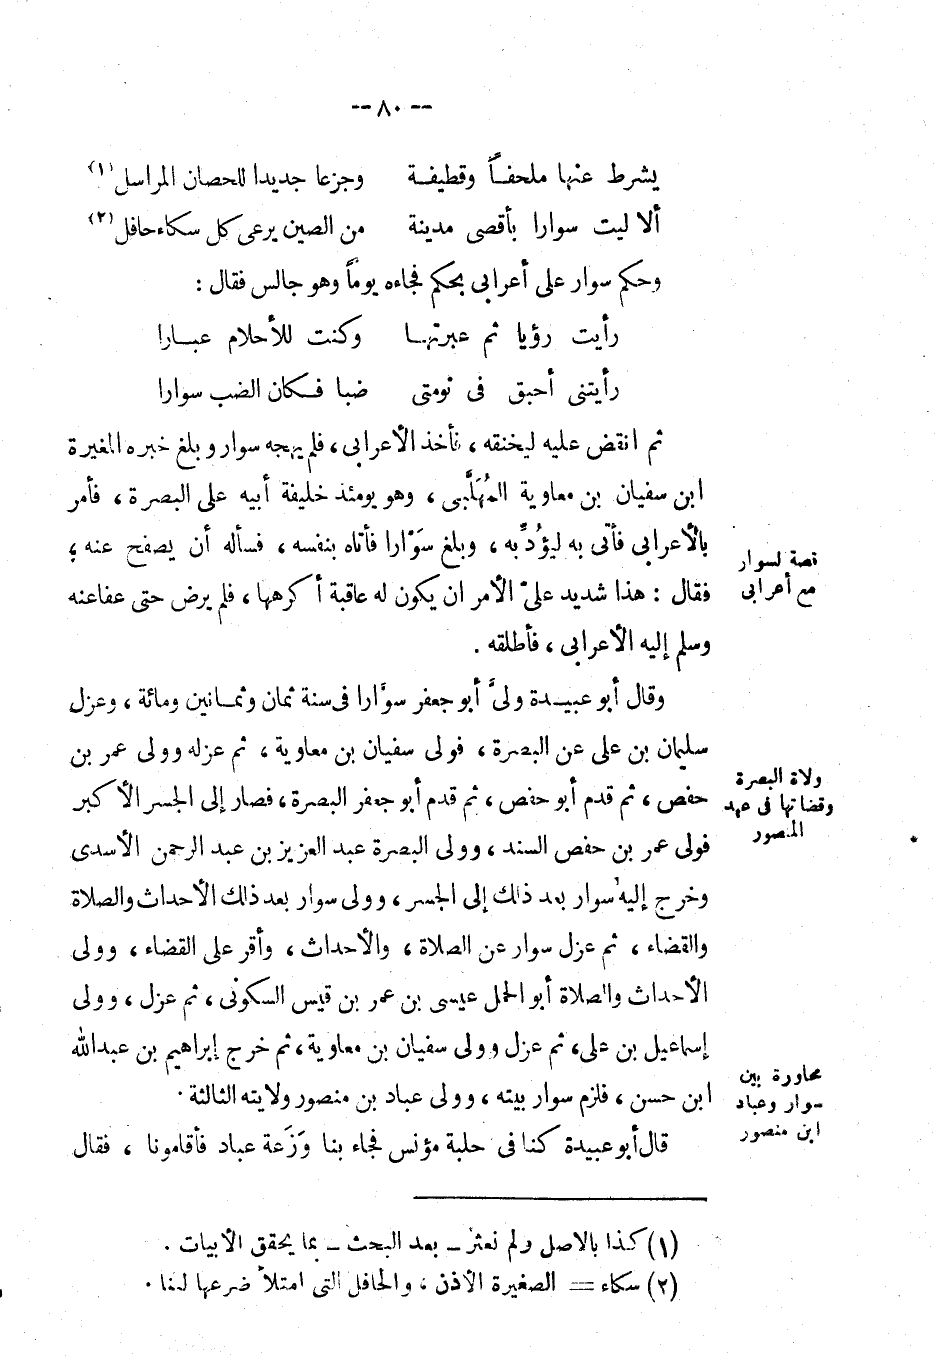 -- ٨٠ --
يشرط عنها ملحفاً وقطيفة وجزعا جديدا للحصان المراسل (١)
ألا ليت سوارا بأقصى مدينة من الصين يرعى كل سكاء حافل (٢)
وحكم سوار على أعرابى بحكم فجاءه يوماً وهو جالس فقال :
رأيت رؤيا ثم عبرتها وكنت للأحلام عبارا
رأيتنى أحبق فى نومتى ضبا فكان الضب سوارا
ثم انقض عليه ليخنقه ، فأخذ الأعرابى ، فلم يهجه سوار وبلغ خبره المغيرة
ابن سفيان بن معاوية المُهَلَّبى ، وهو يومئذ خليفة أبيه على البصرة ، فأمر
بالأعرابى فأتى به ليؤدِّبه ، وبلغ سَوّارا فأتاه بنفسه ، فسأله أن يصفح عنه ؛
قصة لسوار
مع أعرابى
فقال : هذا شديد علىّ الأمر ان يكون له عاقبة أكرهها ، فلم يرض حتى عفا عنه
وسلم إليه الأعرابى ، فأطلقه .
وقال أبو عبيدة ولىَّ أبو جعفر سوَّارا فى سنة ثمان وثمانين ومائة ، وعزل
سليمان بن على عن البصرة ، فولى سفيان بن معاوية ، ثم عزله وولى عمر بن
ولاة البصرة
وقضاتها فى عهد
المنصور
حفص ، ثم قدم أبو حفص ، ثم قدم أبو جعفر البصرة ، فصار إلى الجسر الأكبر
فولى عمر بن حفص السند ، وولى البصرة عبد العزيز بن عبد الرحمن الأسدى
وخرج إليه سوار بعد ذلك إلى الجسر ، وولى سوار بعد ذلك الأحداث والصلاة
والقضاء ، ثم عزل سوار عن الصلاة ، والأحداث ، وأقر على القضاء ، وولى
الأحداث والصلاة أبو الجمل عيسى بن عمر بن قيس السكونى ، ثم عزل ، وولى
إسماعيل بن على، ثم عزل وولى سفيان بن معاوية ، ثم خرج إبراهيم بن عبدالله
ابن حسن ، فلزم سوار بيته ، وولى عباد بن منصور ولايته الثالثة .
محاورة بين
سوار وعباد
ابن منصور
قال أبو عبيدة كنا فى حلبة مؤنس فجاء بنا وَزَعة عباد فأقامونا ، فقال
(١) كذا بالاصل ولم نعثر – بعد البحث – بما يحقق الأبيات .
(٢) سكاء = الصغيرة الأذن ، والحافل التى امتلأ ضرعها لبنا .